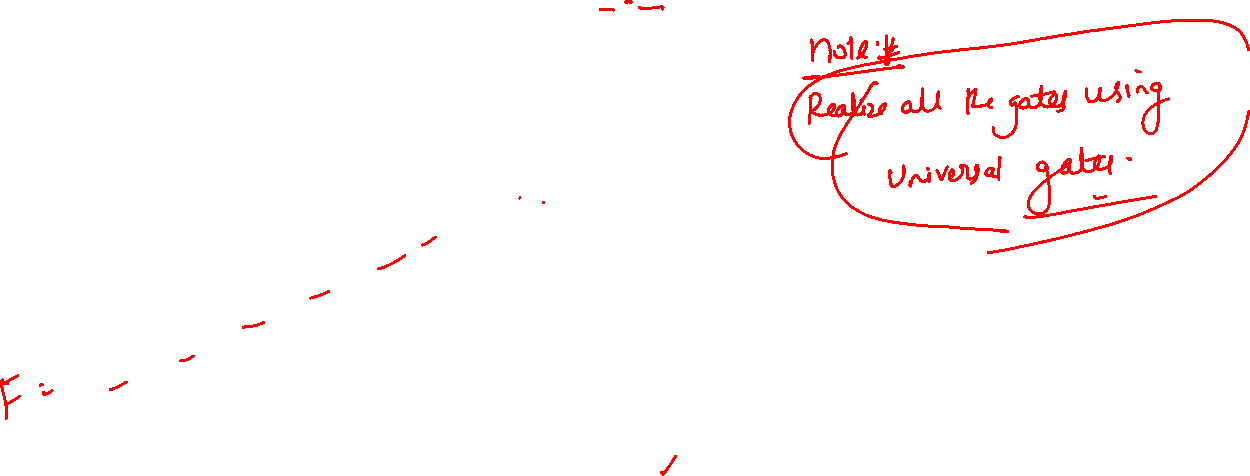 Note:*
Realize all the gates using
Universal gates.
F =